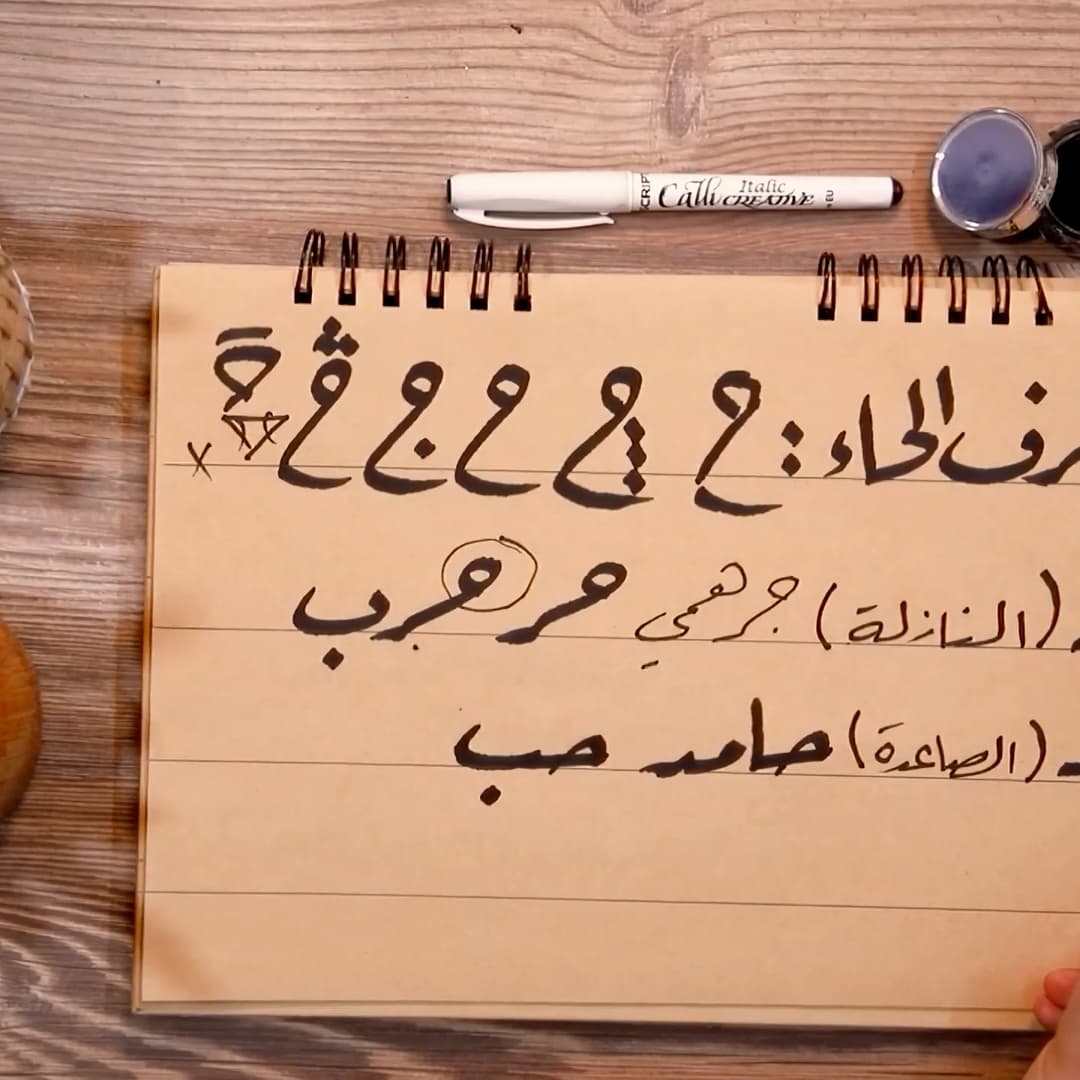 SCRIPT Calli Italic CREATIVE EU
رف الحاء : ح ح ح ج خ
(النازلة) جرهمي حر حرب
(الصاعدة) حامد حب